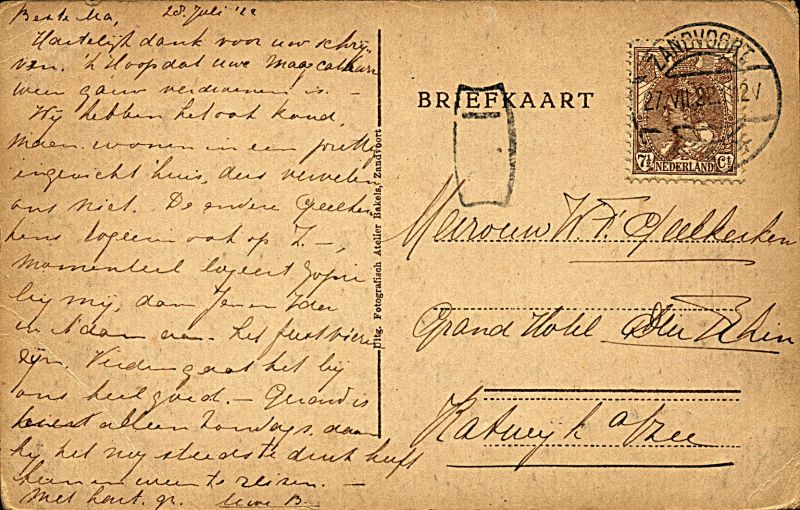 Beste Ma, 28 Juli '22
Hartelijk dank voor uw schrij-
ven. 'k Hoop dat uwe maagcatharr
weer gauw verdwenen is. -
Wij hebben het ook koud,
maar wonen in een prettig
ingericht huis, dus vervelen
ons niet. De andere Geelker-
kens logeeren ook op Z. -,
momenteel logeert
bij mij, daar Jo en
in A'dam aan het feestvieren
zijn. Verder gaat het bij
ons heel goed. - Gerard is
alleen Zondags, daar
hij het nog steeds te druk heeft
heen en weer te reizen. -
Met hart. gr. Uwe B.
Uitg. Fotografisch Atelier Bakels, Zandvoort
BRIEFKAART
ZANDVOORT
27.VII.22. 12V
7½ Ct
NEDERLAND
Mevrouw W. F. Geelkerken
Grand Hotel Du Rhin
Katwijk a/Zee